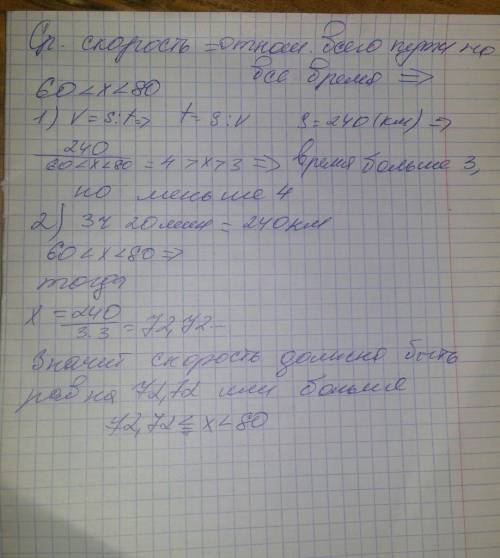 Ср. скорость = отнош. всего пути на
все время ⇒
60 < x < 80
1) V = s:t ⇒ t = s:v S = 240 (км) ⇒
240
60<x<80 = 4 > x > 3 ⇒ время больше 3,
но меньше 4
2) 3ч 20мин = 240км
60 < x < 80 ⇒
тогда
x = 240
3.3 = 72,72...
Значит скорость должна быть
равна 72,72 или больше
72,72 ≤ x < 80